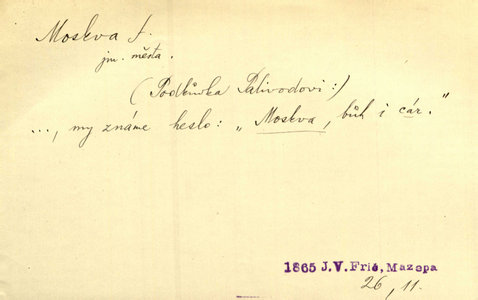 Moskva f.
jm. města.
(Podkůvka Palivodovi:)
..., my známe heslo: „Moskva, bůh i cár."
1865 J.V.Frič, Mazepa
26, 11.